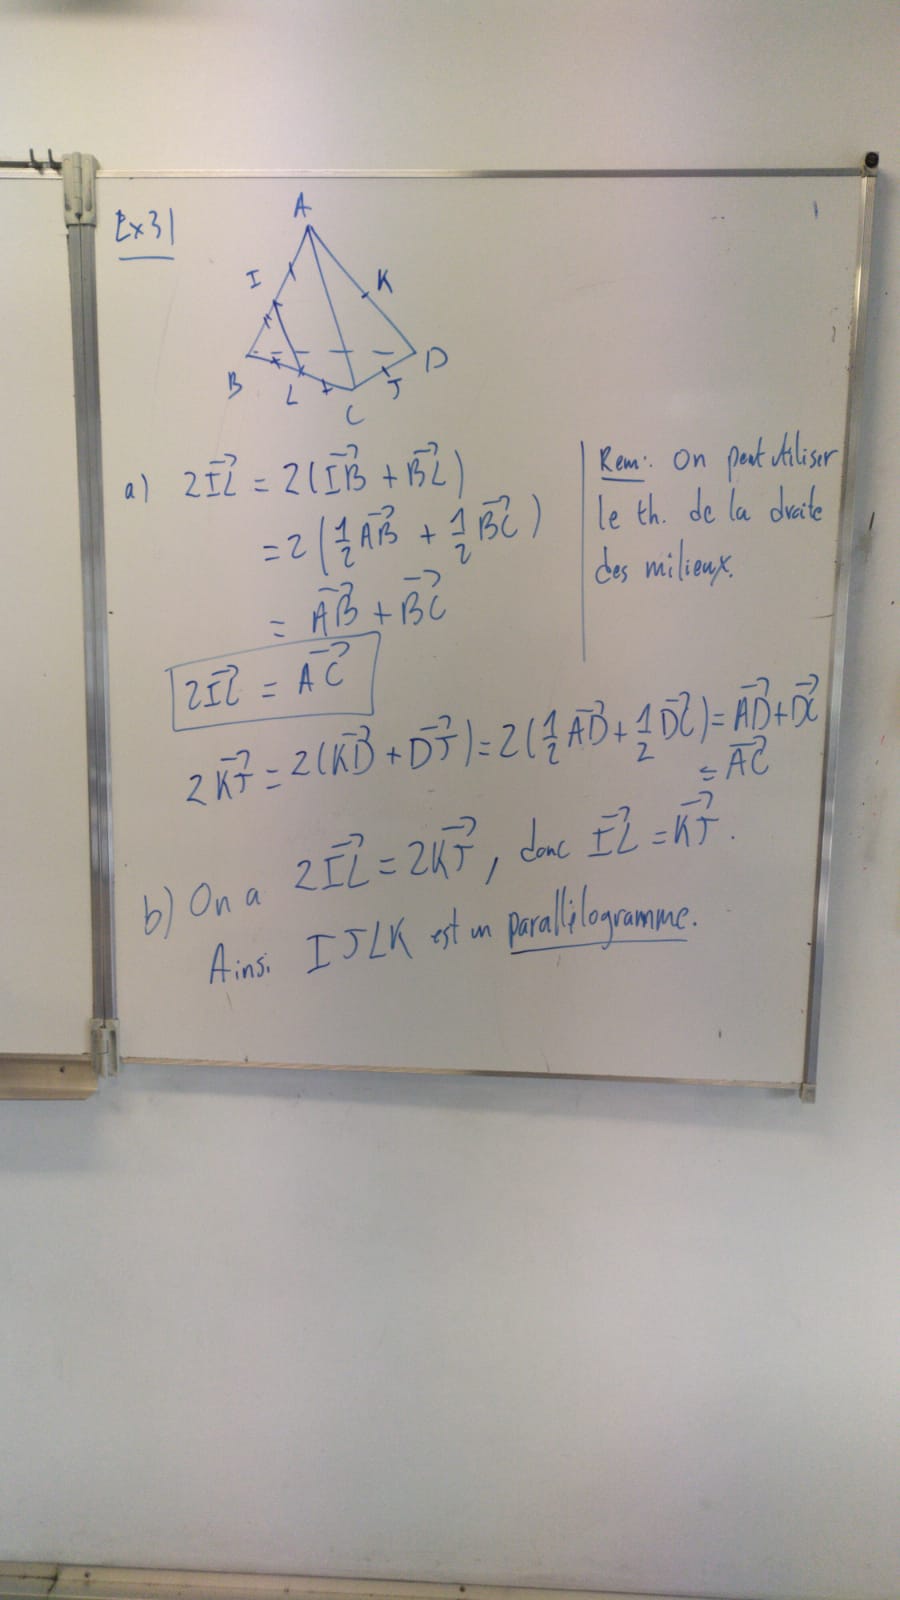 Ex31
A
I
K
B
D
L
J
C
a) 2IL⃗ = 2(IB⃗ + BL⃗)
= 2(1/2 AB⃗ + 1/2 BC⃗)
= AB⃗ + BC⃗
2IL⃗ = AC⃗
Rem: On peut utiliser
le th. de la droite
des milieux.
2KJ⃗ = 2(KD⃗ + DJ⃗) = 2(1/2 AD⃗ + 1/2 DC⃗) = AD⃗ + DC⃗
= AC⃗
b) On a 2IL⃗ = 2KJ⃗, donc IL⃗ = KJ⃗.
Ainsi IJLK est un parallélogramme.